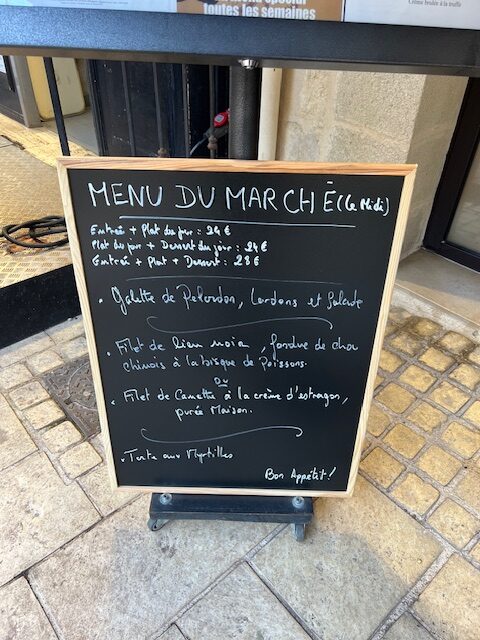 toutes les semaines
Crème brulée à la truffe
MENU DU MARCHÉ (Le Midi)
Entrée + Plat du jour : 24 €
Plat du jour + Dessert du jour : 24 €
Entrée + Plat + Dessert : 28 €
• Galette de Pelardon, Lardons et Salade
• Filet de Lieu noir, fondue de chou
chinois à la bisque de Poissons.
ou
• Filet de Canette à la crème d'estragon,
purée Maison.
• Tarte aux Myrtilles
Bon Appétit !